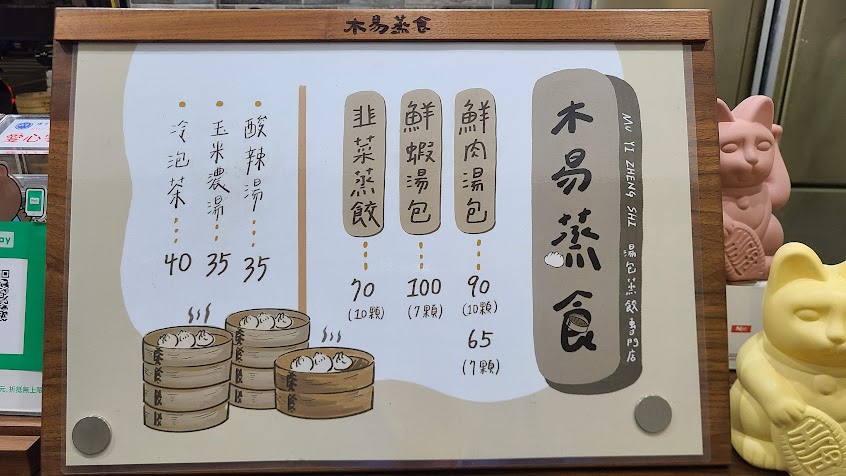 木易蒸食
木易蒸食
MU YI ZHENG SHI 湯包蒸餃專門店
鮮肉湯包 90 (10顆)
65 (7顆)
鮮蝦湯包 100 (7顆)
韭菜蒸餃 70 (10顆)
酸辣湯 35
玉米濃湯 35
冷泡茶 40
Pay